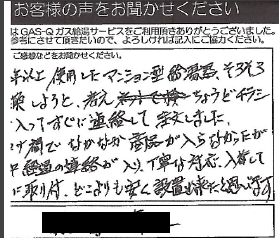 お客様の声をお聞かせください
は GAS-Q ガス給湯サービスをご利用頂きありがとうございました。
参考にさせて頂きたいので、よろしければ記入にご協力ください。
ご感想などをお聞かせください
年以上 使用したマンション型 給湯器、そろそろ
換しようと、考え ちょうどチラシ
入ってすぐに連絡して 注文しました。
なかなか 商品が入らなかったが
経過の連絡が入り、丁寧な対応、入荷して
に取り付、どこよりも安く設置出来たと思います